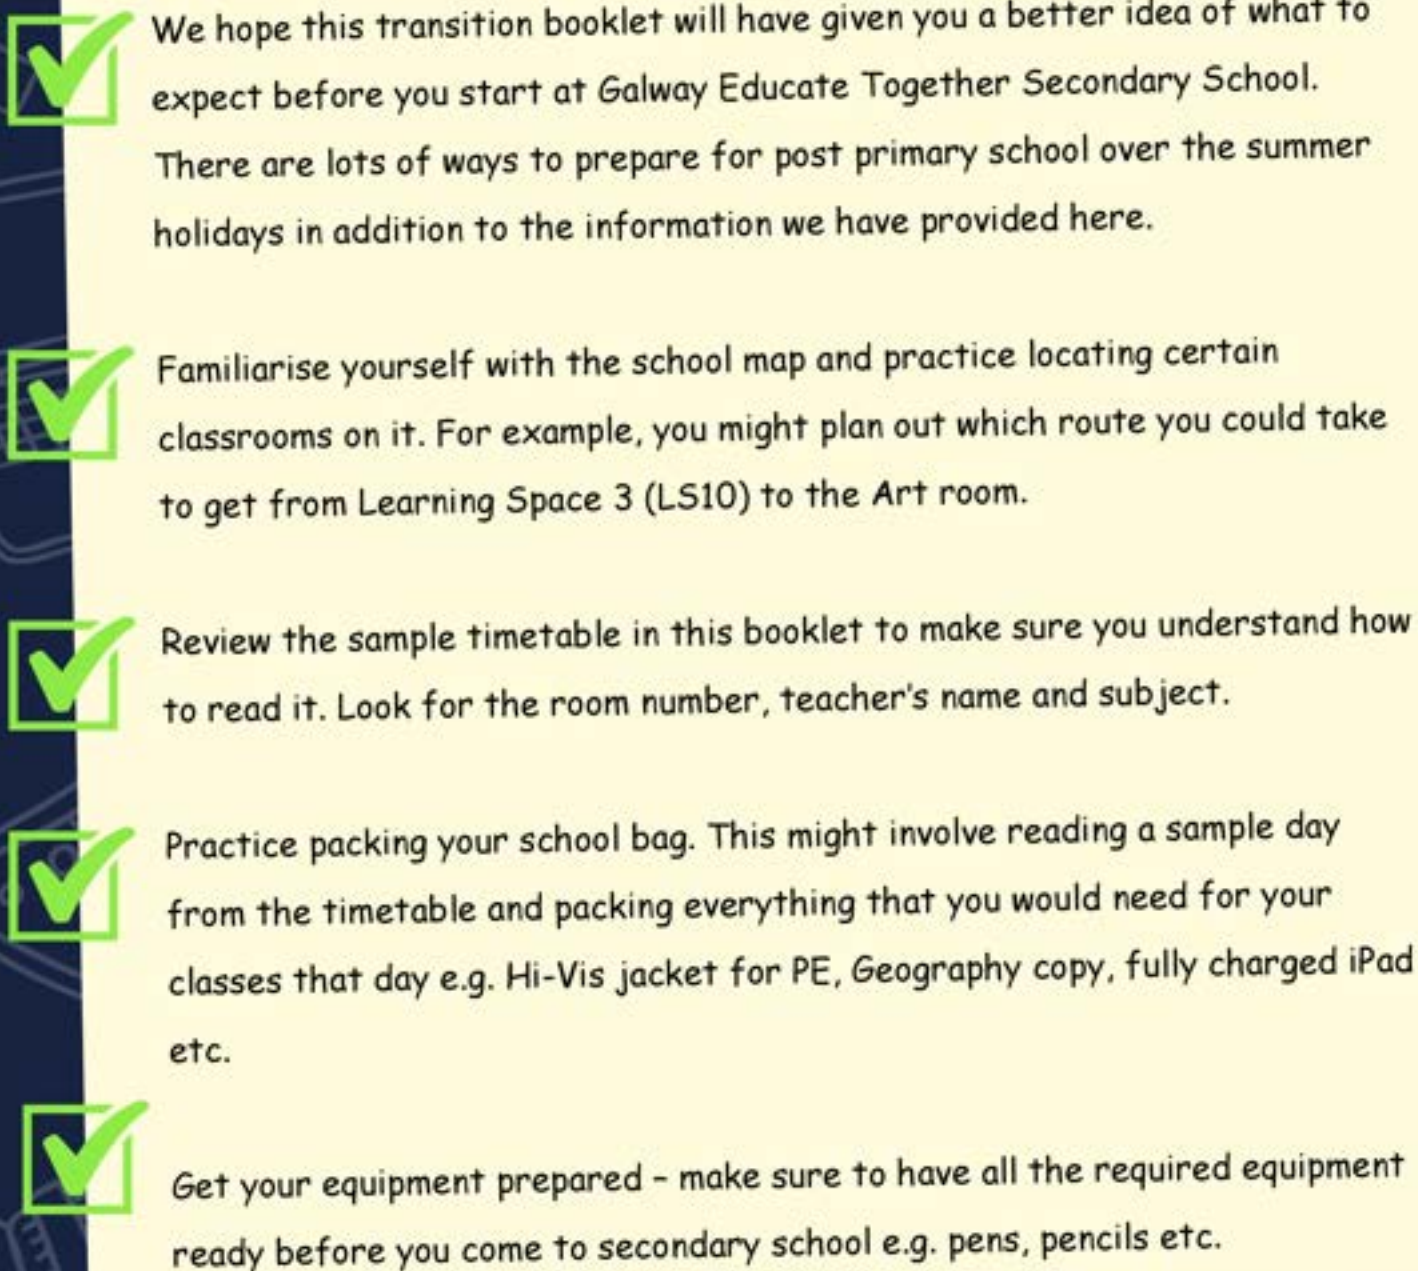 We hope this transition booklet will have given you a better idea of what to
expect before you start at Galway Educate Together Secondary School.
There are lots of ways to prepare for post primary school over the summer
holidays in addition to the information we have provided here.
Familiarise yourself with the school map and practice locating certain
classrooms on it. For example, you might plan out which route you could take
to get from Learning Space 3 (LS10) to the Art room.
Review the sample timetable in this booklet to make sure you understand how
to read it. Look for the room number, teacher's name and subject.
Practice packing your school bag. This might involve reading a sample day
from the timetable and packing everything that you would need for your
classes that day e.g. Hi-Vis jacket for PE, Geography copy, fully charged iPad
etc.
Get your equipment prepared – make sure to have all the required equipment
ready before you come to secondary school e.g. pens, pencils etc.